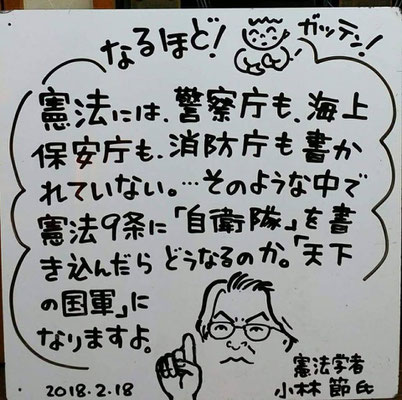 なるほど!
ガッテン!
憲法には、警察庁も、海上
保安庁も、消防庁も書か
れていない。…そのような中で
憲法9条に「自衛隊」を書
き込んだら どうなるのか。「天下
の国軍」に
なりますよ。
憲法学者
小林 節氏
2018.2.18